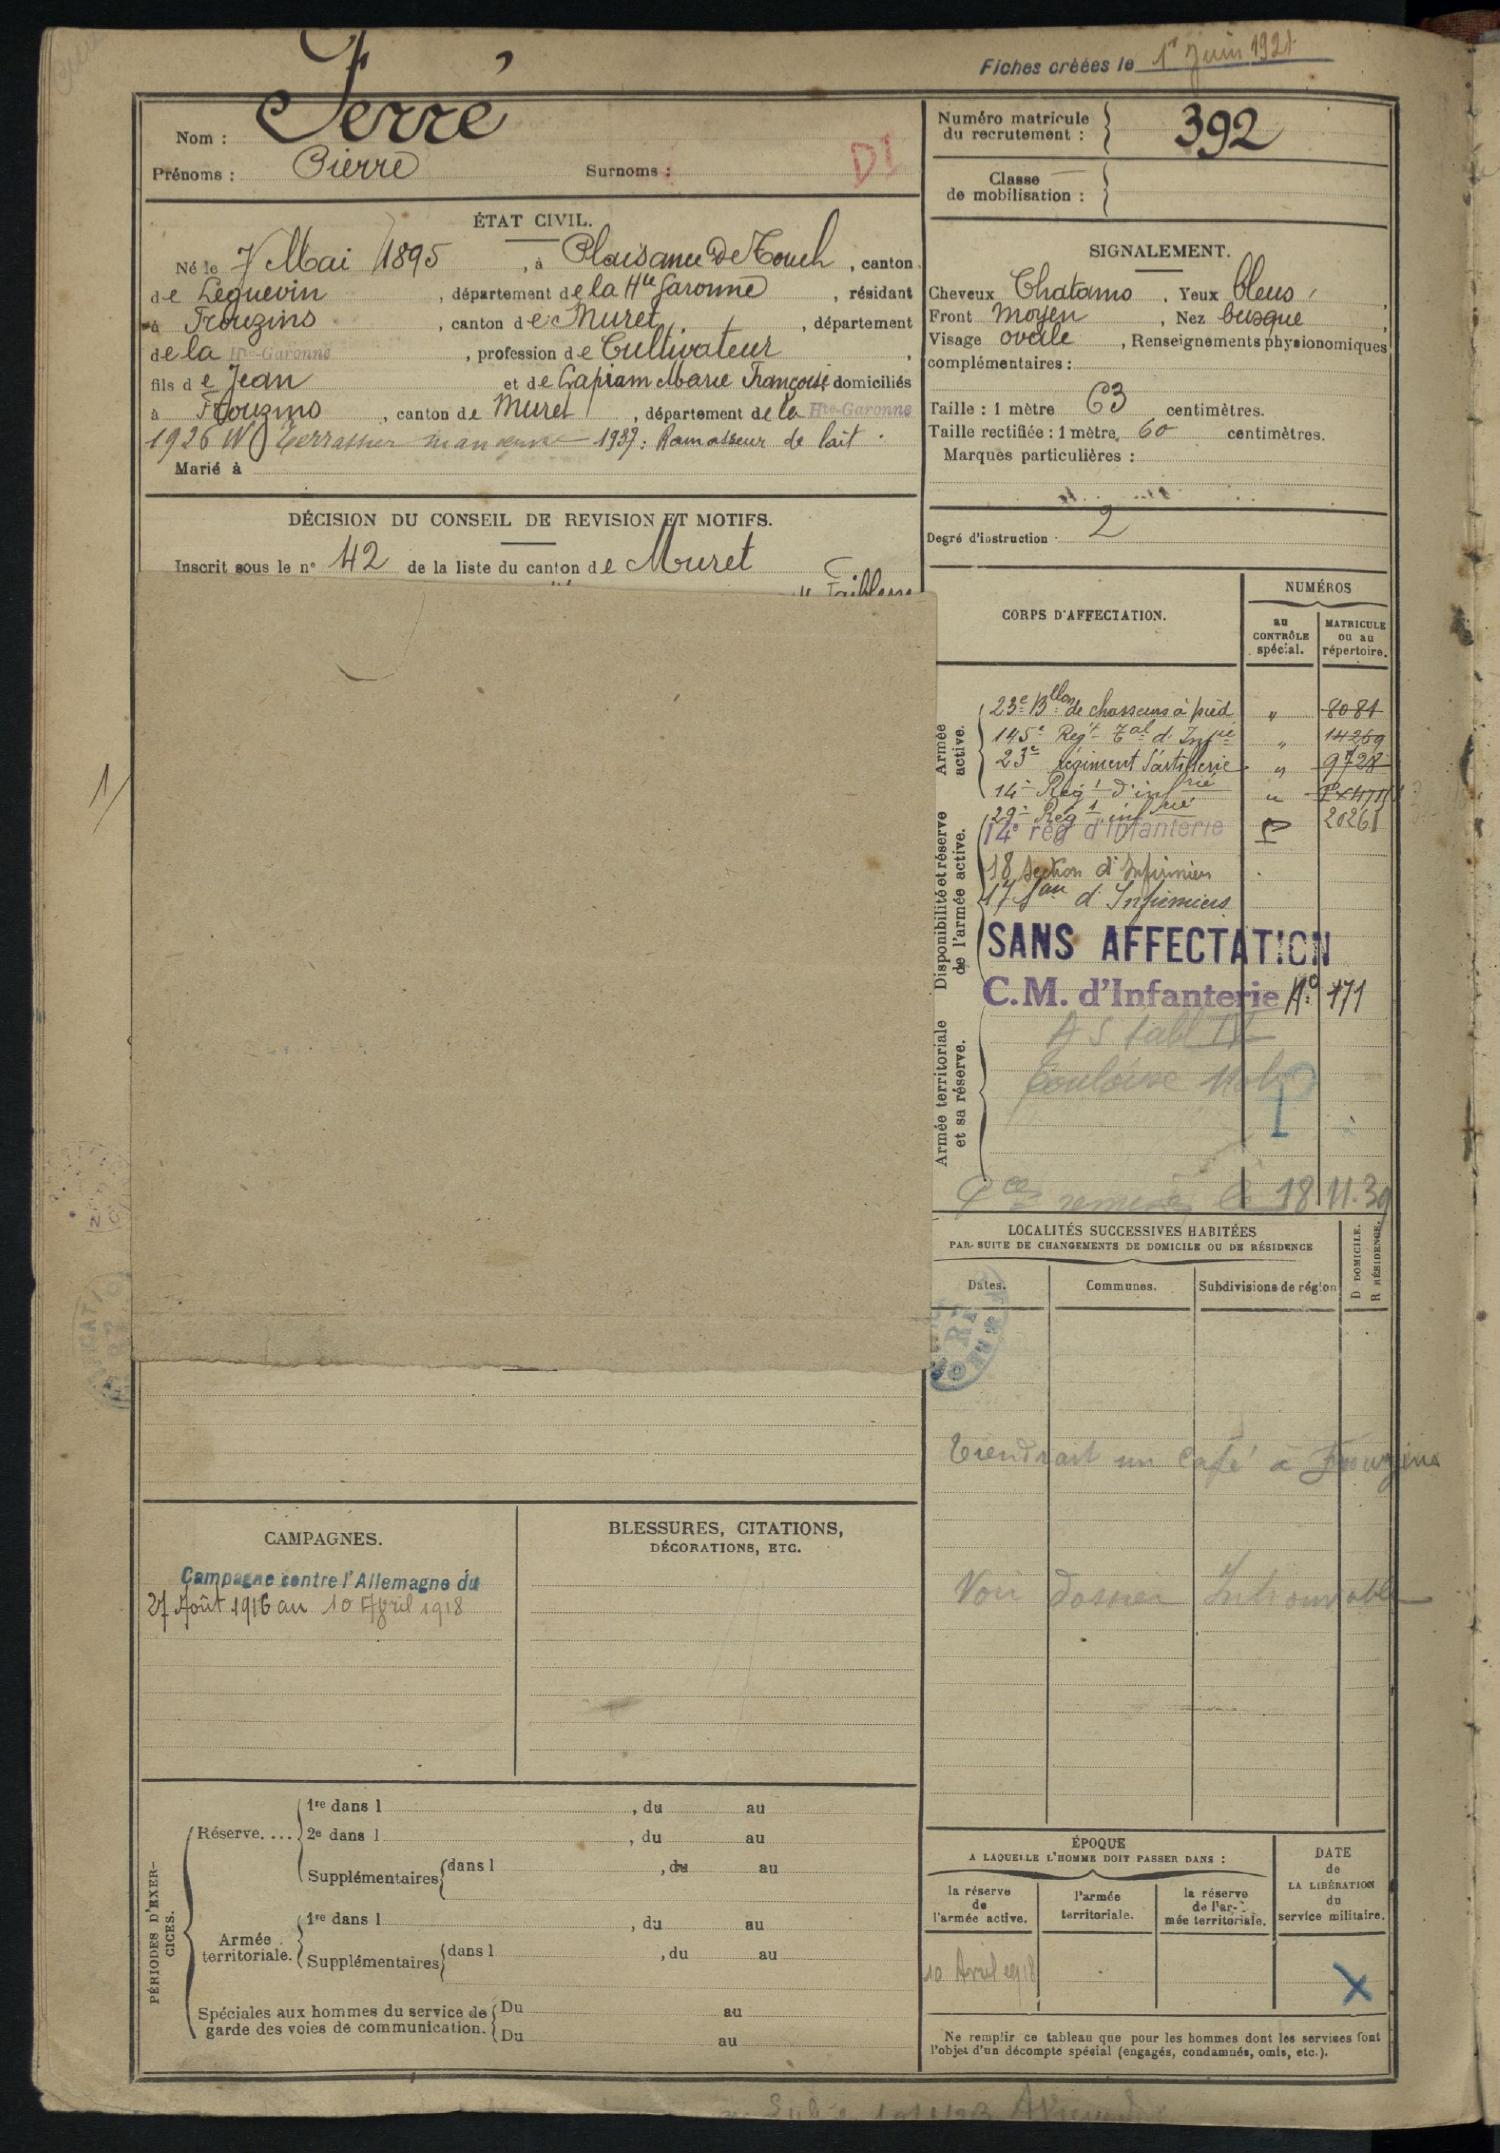 Fiches créées le 1er Juin 1921
Nom : Ferré
Prénoms : Pierre Surnoms : DI
Numéro matricule du recrutement : 392
Classe de mobilisation :
ÉTAT CIVIL.
Né le 7 Mai 1895, à Plaisance de Touch, canton
de Leguevin, département de la Hte Garonne, résidant
à Frouzins, canton de Muret, département
de la Hte-Garonne, profession de Cultivateur,
fils de Jean et de Marie Françoise domiciliés
à Frouzins, canton de Muret, département de la Hte-Garonne
1926 Terrassier 1937 : Ramasseur de lait.
Marié à
SIGNALEMENT.
Cheveux Chatains. Yeux bleus,
Front moyen, Nez busqué,
Visage ovale, Renseignements physionomiques
complémentaires :
Taille : 1 mètre 63 centimètres.
Taille rectifiée : 1 mètre 60 centimètres.
Marques particulières :
Degré d'instruction 2
DÉCISION DU CONSEIL DE REVISION ET MOTIFS.
Inscrit sous le n° 42 de la liste du canton de Muret
Faiblesse
CORPS D'AFFECTATION.
NUMÉROS
au CONTRÔLE spécial.
MATRICULE ou au répertoire.
Armée active.
23e Bllon de chasseurs à pied " 8081
145e Regt Tal d'Infie " 14269
23e régiment d'artillerie " 9728
14e Regt d'infrie "
29e Regt infrie 20261
Disponibilité et réserve de l'armée active.
14e rég d'infanterie
18 Section d'Infirmiers
17 Son d'Infirmiers
SANS AFFECTATION
C.M. d'Infanterie No 171
Armée territoriale et sa réserve.
A S tabl IV
Toulouse Mob
Pces remises le 18.11.39
LOCALITÉS SUCCESSIVES HABITÉES
PAR SUITE DE CHANGEMENTS DE DOMICILE OU DE RÉSIDENCE
D DOMICILE.
R RÉSIDENCE.
Dates. Communes. Subdivisions de région
Tiendrait un Café à Frouzins
Voir dossier Introuvable
CAMPAGNES.
Campagne contre l'Allemagne du
27 Août 1916 au 10 Avril 1918
BLESSURES, CITATIONS,
DÉCORATIONS, ETC.
PÉRIODES D'EXERCICES.
Réserve....
1re dans l , du au
2e dans l , du au
Supplémentaires dans l , du au
Armée territoriale.
1re dans l , du au
Supplémentaires dans l , du au
Spéciales aux hommes du service de garde des voies de communication.
Du au
Du au
ÉPOQUE
A LAQUELLE L'HOMME DOIT PASSER DANS :
la réserve de l'armée active.
l'armée territoriale.
la réserve de l'armée territoriale.
DATE de LA LIBÉRATION du service militaire.
10 Avril 1918
X
Ne remplir ce tableau que pour les hommes dont les services font
l'objet d'un décompte spécial (engagés, condamnés, omis, etc.).